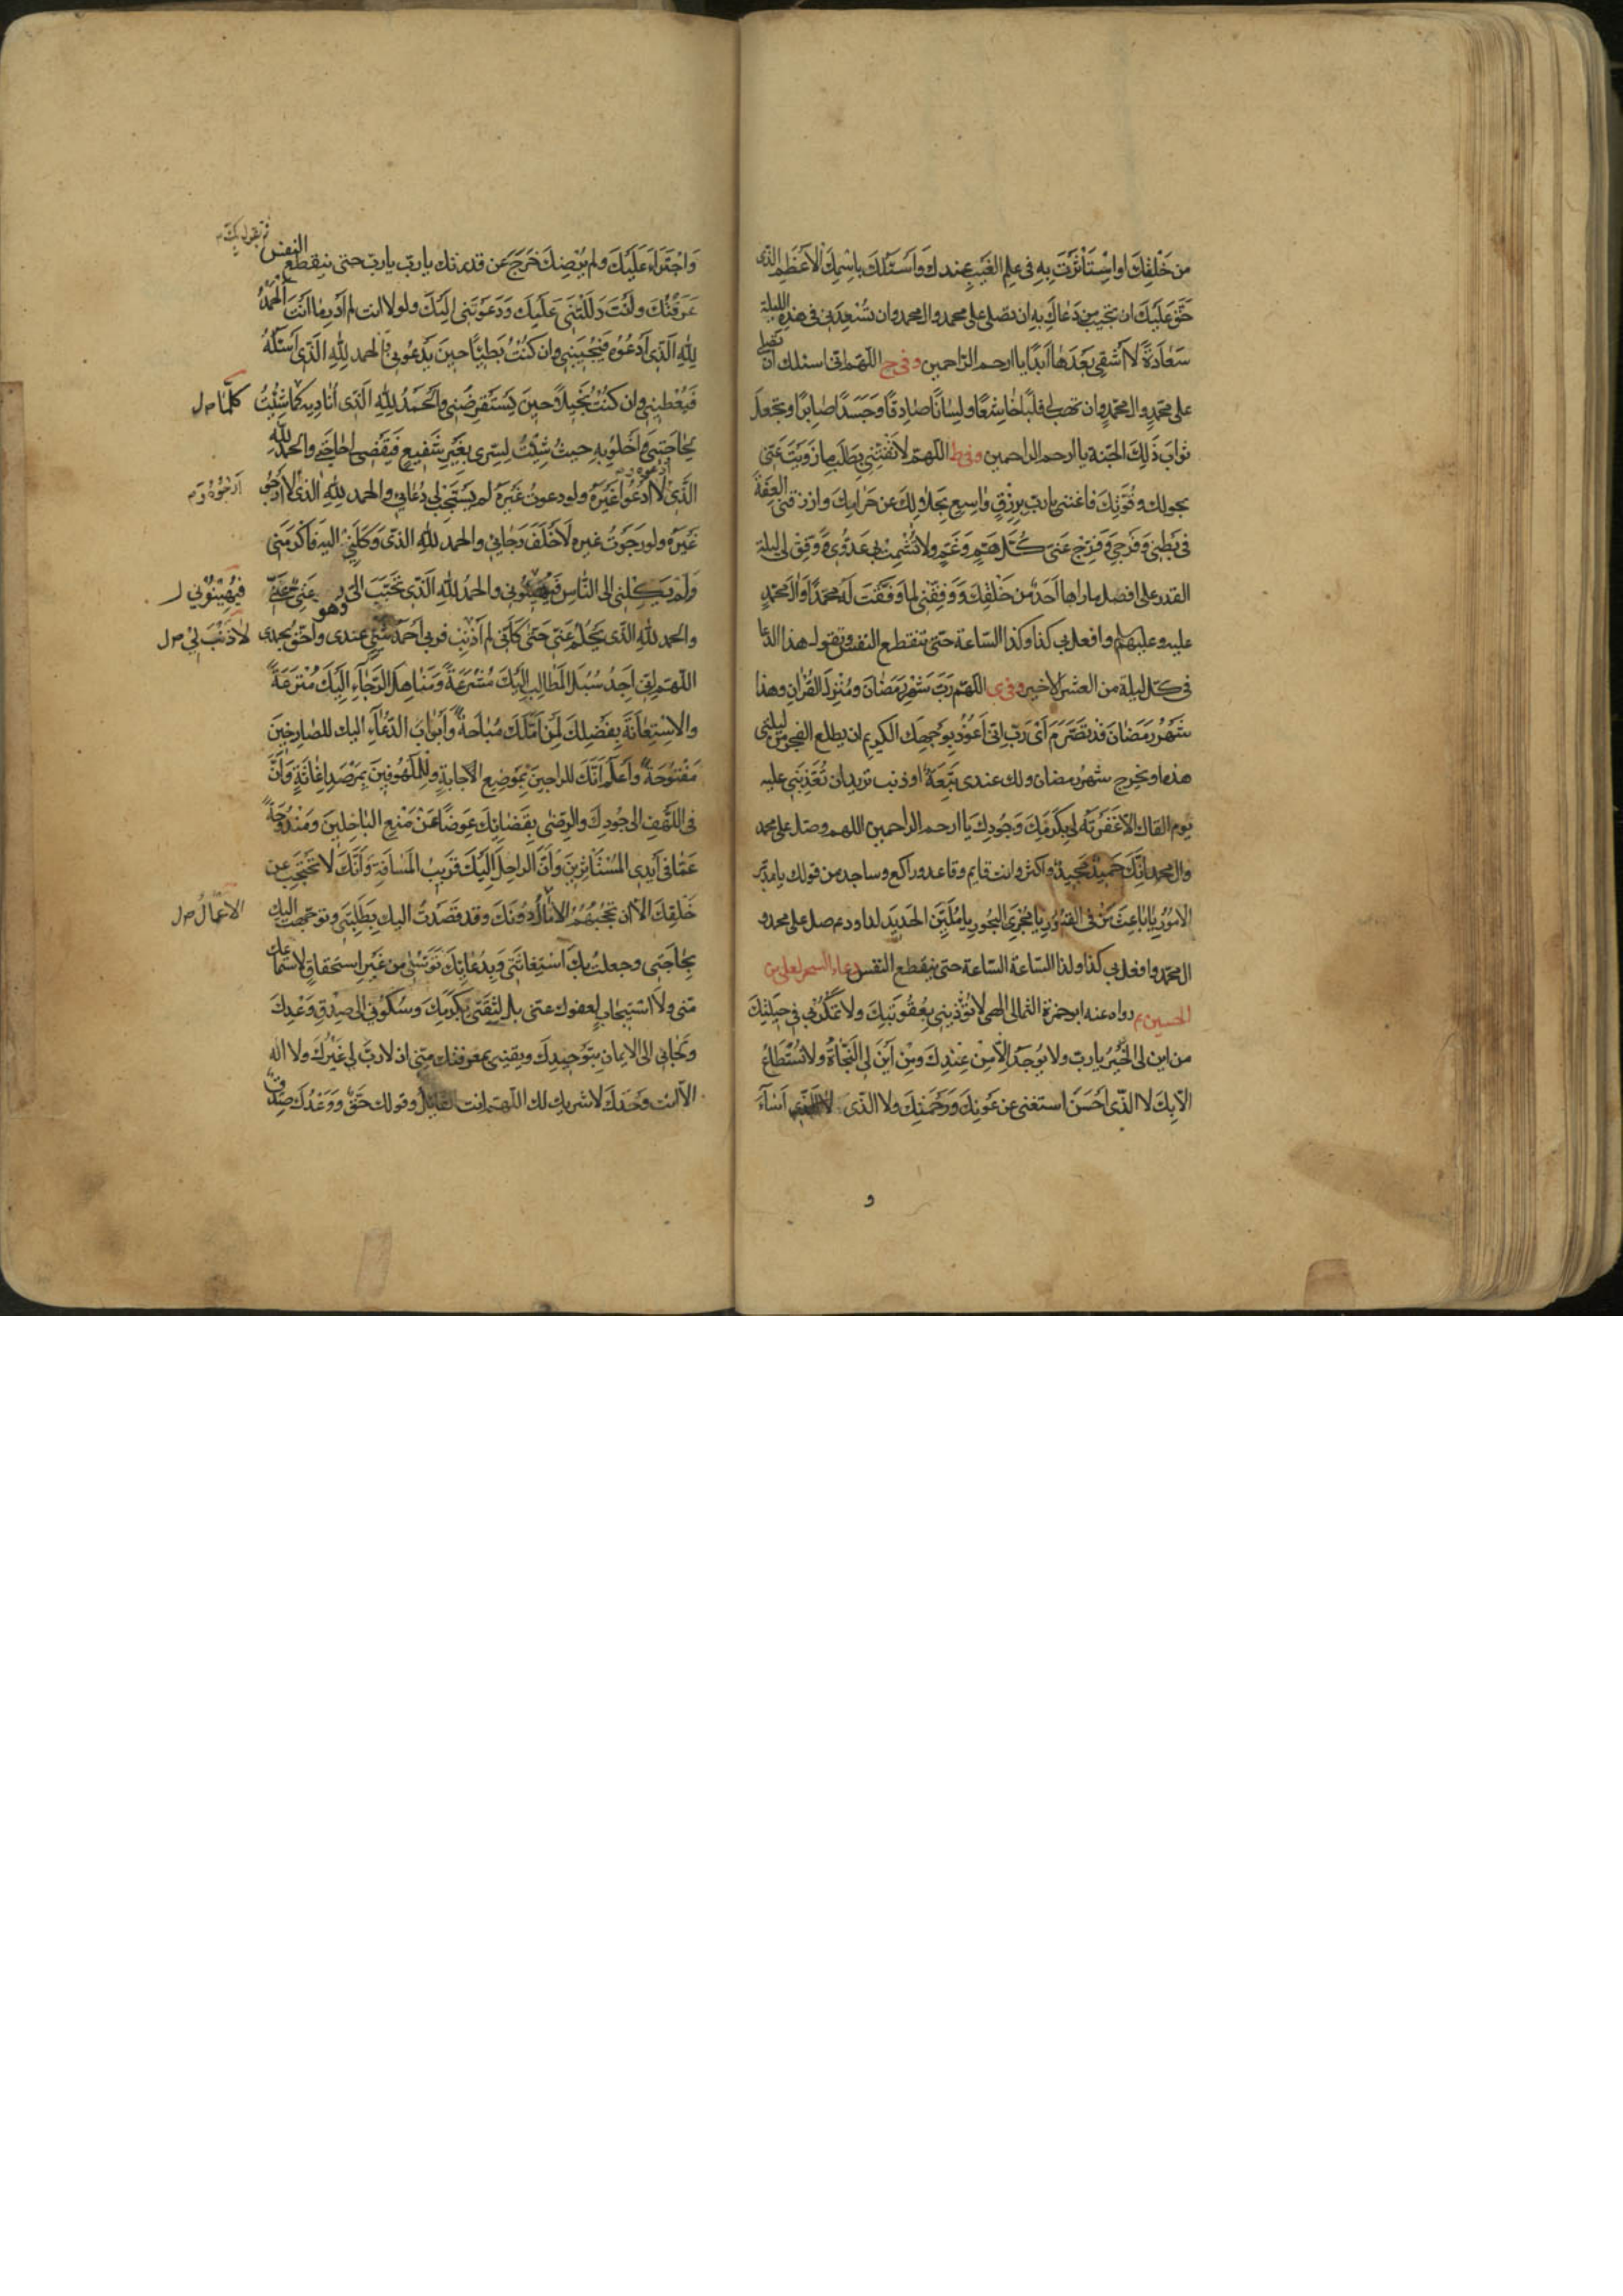 من خَلْقِكَ او اسْتَأْثَرْتَ بِهِ فى عِلْمِ الغَيْبِ عِندك وَاَسئَلُكَ بِاسْمِكَ الاَعْظَمِ الذّى
حَقٌّ عَلَيْكَ ان تجيب من دَعاكَ بِهِ ان تصلى على محمد وال محمد وان تُسْعِدَنى فى هذه الليلة
سَعادَةً لا اَشْقى بَعْدَها اَبَدًا يا ارحم الرّاحمين وفى ح اللّهمّ انى اسئلك ان تصلى
على محمّدٍ وال محمّدٍ وان تهب لى قلبًا خاشِعًا ولِسانًا صادِقًا وَجَسَدًا صابِرًا وتجعل
ثوابَ ذلِكَ الجَنّة يا ارحم الراحمين وفى ط اللّهمّ لا تَفْتِنّى بِطَلَبِ ما زَوَيْتَ عَنّى
بحولك وقُوَّتِكَ فاغننى يا ربّ بِرِزْقٍ واسِعٍ بِحَلالِكَ عن حَرامِكَ وارزقنى العِفَّةَ
فى بَطْنى وَفَرْجى وَفَرِّج عَنّى كُلَّ هَمٍّ وَغَمٍّ ولا تُشْمِتْ بى عَدُوّى وَوَفِّقْ لى ليلة
القدر على افضل ما راها اَحَدٌ من خَلْقِكَ وَوَفِّقْنى لِما وَفَّقْتَ لَهُ محمّدًا وَالَ محمّدٍ
عليه وعليهم وافعل بى كذا وكذا السّاعة حتى تنقطع النفس وتقول هذا الدعا
فى كلّ ليلة من العشر الاخير وفى ى اللهمّ رَبَّ شَهْرِ رَمَضانَ ومُنْزِلَ القُرْانِ وهذا
شَهْرُ رَمَضانَ قد تصَرَّمَ اَىْ رَبِّ اِنّى اَعُوذُ بِوَجْهِكَ الكريم ان يطلع الفجر من ليلتى
هذه او يخرج شهرُ رمضان ولك عندى تَبِعَةٌ او ذنب تريد ان تُعَذِّبَنى عليه
يوم القاك الا غَفَرْتَهُ لى بِكَرَمِكَ وَجُودِكَ يا ارحم الراحمين اللهم وصلّ على محمد
وال محمد اِنَّكَ حَمِيدٌ مَجِيدٌ واكثر وانت قايم وقاعد وراكع وساجد من قولك يا مدبّر
الاُمُورِ يا باعِثَ مَنْ فى القُبُورِ يا مُجْرِىَ البُحُورِ يا مُلَيِّنَ الحَدِيدِ لداود صل على محمد و
ال محمّد وافعل بى كذا وكذا السّاعة السّاعة حتى ينقطع النفس دعاء السحر لعلى بن
الحسين ع رواه عنه ابو حمزة الثمالى الهى لا تُؤَدِّبْنى بِعُقُوبَتِكَ ولا تَمْكُرْ بى فى حِيلَتِكَ
من اين لى الخَيْرُ يا ربّ ولا يُوجَدُ اِلاّ مِنْ عِنْدِكَ ومِنْ اَيْنَ لِىَ النَّجاةُ ولا تُسْتَطاعُ
الاّ بِكَ لا الذّى اَحْسَنَ استغنى عن عَوْنِكَ وَرَحْمَتِكَ ولا الذّى اَساءَ
و
ثم تقول
وَاجْتَرَاَ عَلَيْكَ ولم يُرْضِكَ خَرَجَ عن قدرتك يا ربّ يا ربّ حتى ينقطع النفس
عَرَفْتُكَ واَنْتَ دَلَلْتَنى عَلَيْكَ وَدَعَوْتَنى اِلَيْكَ ولولا انت لم اَدْرِ ما اَنْتَ اَلْحَمْدُ
لِلّهِ الَّذى اَدْعُوهُ فَيُجيبُنى وان كُنْتُ بَطيئًا حينَ يَدْعُونى والحمد لِلّهِ الَّذى اَسْئَلُهُ
فَيُعْطينى وان كُنْتُ بَخيلاً حينَ يَسْتَقْرِضُنى وَالْحَمْدُ لِلّهِ الَّذى اُناديهِ كما شِئْتُ
كلَّما صل
لِحاجَتى وَاَخْلُو بِهِ حيثُ شِئْتُ لِسِرّى بِغَيْرِ شَفيعٍ فَيَقْضى لى حاجَتى والحمد لِلّهِ
الَّذى لا اَدْعُوا غَيْرَهُ ولو دعوتُ غَيْرَهُ لم يَسْتَجِبْ لى دُعائى والحمد لِلّهِ الذى لا اَرْجُو
اَدعوه
اَرْجُوهُ
غَيْرَهُ ولو رَجَوْتُ غيره لَاَخْلَفَ رَجائى والحمد لِلّهِ الذّى وَكَلَنى اليه فَاَكْرَمَنى
وَلَمْ يَكِلْنى الى النّاسِ فَيُهينُونى والحمدُ لِلّهِ الَّذى تَحَبَّبَ الىَّ وهو غَنِىٌّ عَنّى
فيُهِينُونى ل
والحمد لِلّهِ الذّى يَحْلُمُ عَنّى حَتّى كَاَنّى لم اُذْنِبْ فربى اَحْمَدُ شَىْءٍ عندى واَحَقُّ بحمدى
لا ذَنْبَ لى صل
اللّهمّ اِنّى اَجِدُ سُبُلَ المَطالِبِ اِلَيْكَ مُشْرَعَةً ومَناهِلَ الرَّجاءِ اِلَيْكَ مُتْرَعَةً
والاِسْتِعانَةَ بِفَضْلِكَ لِمَنْ اَمَّلَكَ مُباحَةً وَاَبْوابَ الدُّعاءِ اليك للصّارِخينَ
مَفْتُوحَةً وَاَعْلَمُ اَنَّكَ للراجينَ بِمَوْضِعِ الاجابةِ ولِلْمَلْهُوفينَ بِمَرْصَدِ اِغاثَةٍ وَاَنَّ
فى اللَّهْفِ الى جُودِكَ والرِّضى بِقَضائِكَ عِوَضًا مَنْ مَنْعِ الباخِلينَ ومَنْدُوحَةً
عَمّا فى اَيْدِى المُسْتَأثِرينَ وَاَنَّ الرّاحِلَ اِلَيْكَ قَريبُ المَسافَةِ وَاَنَّكَ لا تَحْتَجِبُ عن
خَلْقِكَ الاّ ان تحْجُبَهُمُ الاٰمالُ دُونَكَ وقد قَصَدْتُ اليك بِطَلِبَتى وتوجّهت اليك
الاعْمالُ صل
بِحاجَتى وجعلتُ بِكَ اسْتِغاثَتى وَبِدُعائِكَ تَوَسُّلى من غَيْرِ استحقاقٍ لاستماعك
منّى ولا اسْتيجابٍ لِعفوك عنى بل لِثِقَتى بِكَرَمِكَ وَسُكُونى الى صِدْقِ وَعْدِكَ
ولَجَائى الى الايمانِ بِتَوْحيدِكَ ويقينى بمعرفتك مِنّى ان لا ربَّ لى غَيْرُكَ ولا اله
الاّ انت وَحْدَكَ لا شريك لك اللّهمّ انت القائل وقولك حَقٌّ وَوَعْدُكَ صِدْقٌ